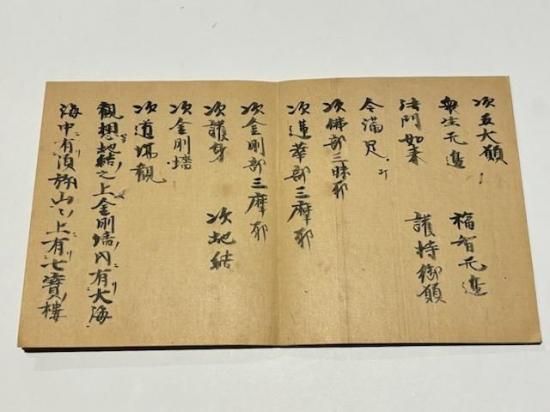 次五大願
衆生无邊　福智无邊
法門如来　護持御願
令満足
次佛部三昧耶
次蓮華部三摩耶
次金剛部三摩耶
次護身　次地結
次金剛墻
次道場觀
觀想地結之上金剛墻内有大海
海中有須弥山々上有七寶樓